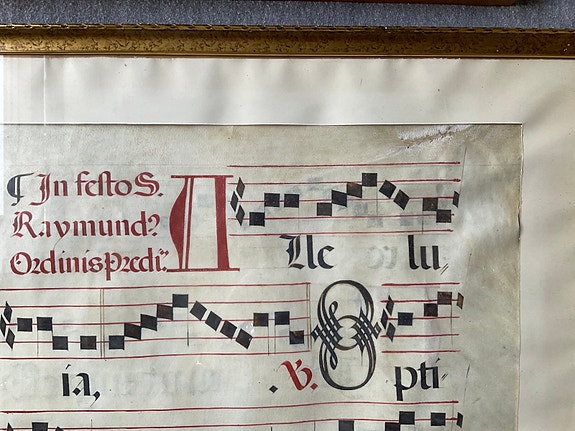 ¶ In festo S.
Raymund?
Ordinis Predi:
Alle lu,
ia, . V. Opti-